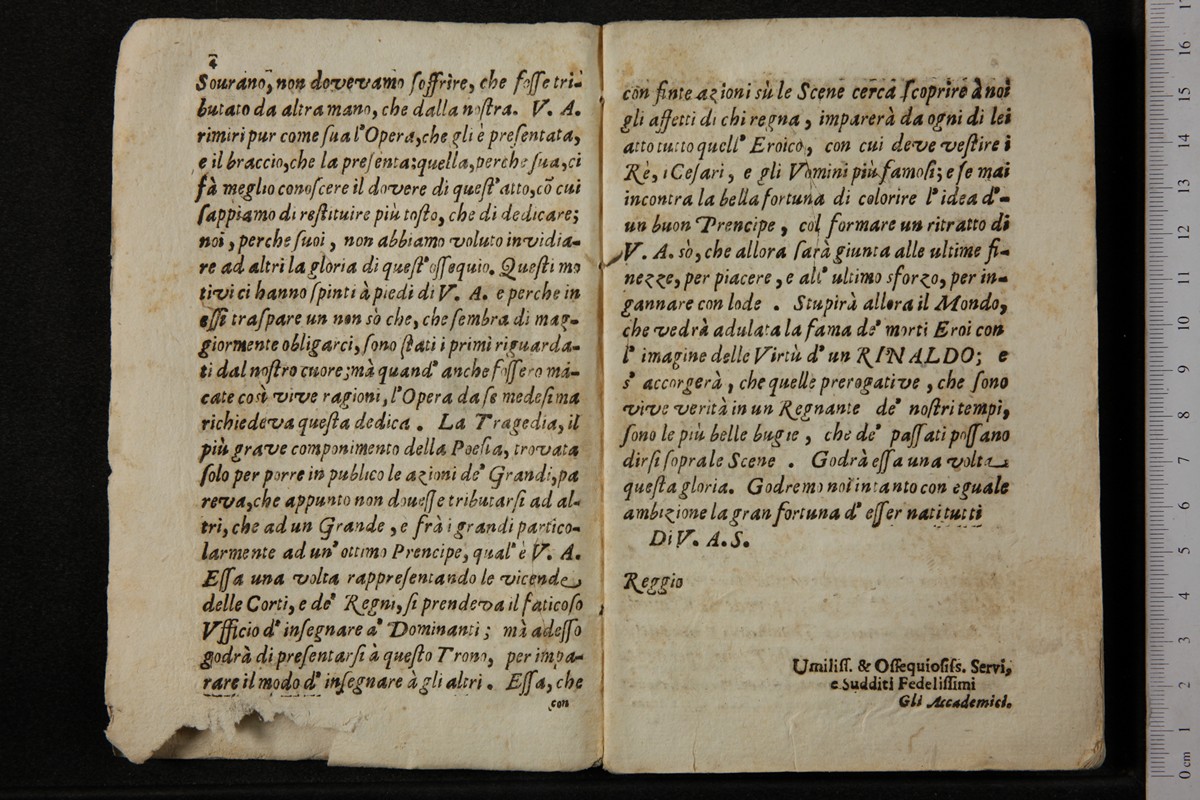 4
Sourano, non dovevamo ſoffrire, che foſſe tri-
butato da altra mano, che dalla noſtra. V. A.
rimiri pur come ſua l'Opera, che gli è preſentata,
e il braccio, che la preſenta; quella, perche ſua, ci
fà meglio conoſcere il dovere di queſt'atto, cõ cui
ſappiamo di reſtituire più toſto, che di dedicare;
noi, perche ſuoi, non abbiamo voluto invidia-
re ad altri la gloria di queſt'oſſequio. Queſti mo
tivi ci hanno ſpinti à piedi di V. A. e perche in
eſſi traſpare un non sò che, che ſembra di mag-
giormente obligarci, ſono ſtati i primi riguarda-
ti dal noſtro cuore; mà quand' anche foſſero mã-
cate così vive ragioni, l'Opera da ſe medeſima
richiedeva queſta dedica. La Tragedia, il
più grave componimento della Poeſia, trovata
ſolo per porre in publico le azioni de' Grandi, pa
reva, che appunto non doueſſe tributarſi ad al-
tri, che ad un Grande, e frà i grandi partico-
larmente ad un' ottimo Prencipe, qual' è V. A.
Eſſa una volta rappreſentando le vicende
delle Corti, e de' Regni, ſi prendeva il faticoſo
Vfficio d' inſegnare a' Dominanti; mà adeſſo
godrà di preſentarſi à queſto Trono, per impa-
rare il modo d' inſegnare à gli altri. Eſſa, che
con
con finte azioni sù le Scene cerca ſcoprire à noi
gli affetti di chi regna, imparerà da ogni di lei
atto tutto quell' Eroico, con cui deve veſtire i
Rè, i Ceſari, e gli Vomini più famoſi; e ſe mai
incontra la bella fortuna di colorire l'idea d'-
un buon Prencipe, col formare un ritratto di
V. A. sò, che allora ſarà giunta alle ultime fi-
nezze, per piacere, e all' ultimo sforzo, per in-
gannare con lode. Stupirà allora il Mondo,
che vedrà adulata la fama de' morti Eroi con
l' imagine delle Virtù d' un RINALDO; e
s' accorgerà, che quelle prerogative, che ſono
vive verità in un Regnante de' noſtri tempi,
ſono le più belle bugie, che de' paſſati poſſano
dirſi ſopra le Scene. Godrà eſſa una volta
queſta gloria. Godremo noi intanto con eguale
ambizione la gran fortuna d' eſſer nati tutti
Di V. A. S.
Reggio
Umiliſſ. & Oſſequioſiſs. Servi,
e Sudditi Fedeliſſimi
Gli Accademici.